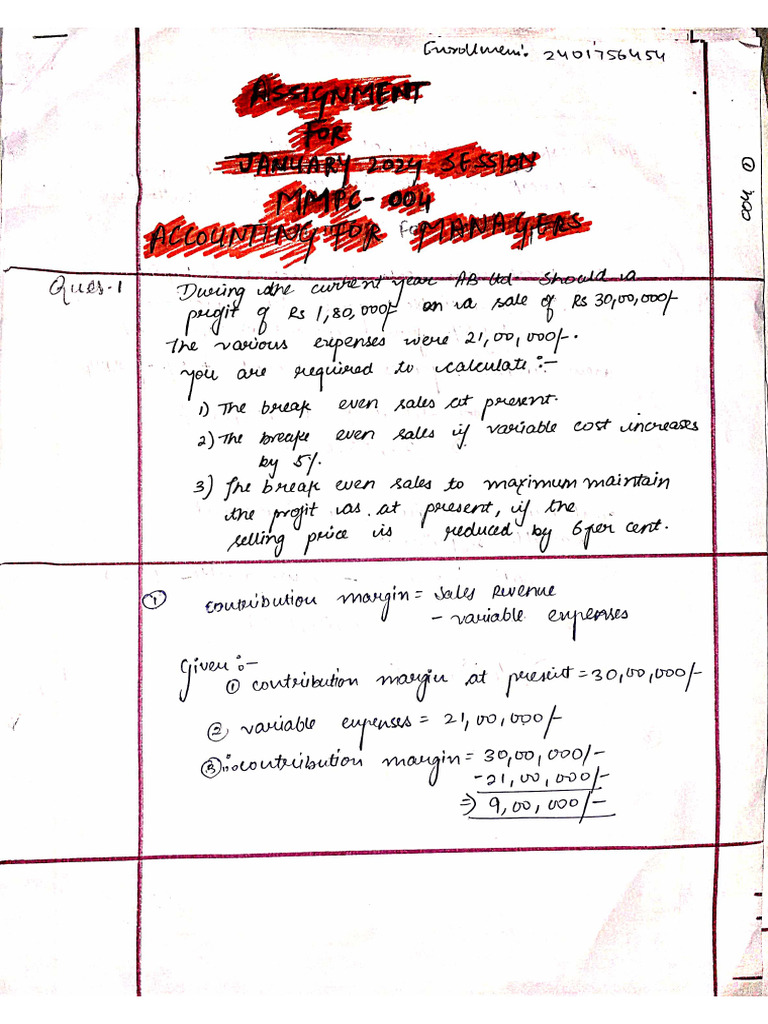 Enrollment: 2401756454
ASSIGNMENT
FOR
JANUARY 2024 SESSION
MMPC-004
ACCOUNTING FOR For MANAGERS
004 ①
Ques.1 During the current year AB ltd should a
profit of Rs 1,80,000/- on a sale of Rs 30,00,000/-
The various expenses were 21,00,000/-.
you are required to calculate :-
1) The break even sales at present.
2) The breake even sales if variable cost increases
by 5%.
3) The break even sales to maximum maintain
the profit as at present, if the
selling price is reduced by 6 per cent.
① contribution margin = sales revenue
- variable expenses
Given :-
① contribution margin at present = 30,00,000/-
② variable expenses = 21,00,000/-
③ ∴ contribution margin = 30,00,000/-
-21,00,000/-
⇒ 9,00,000/-